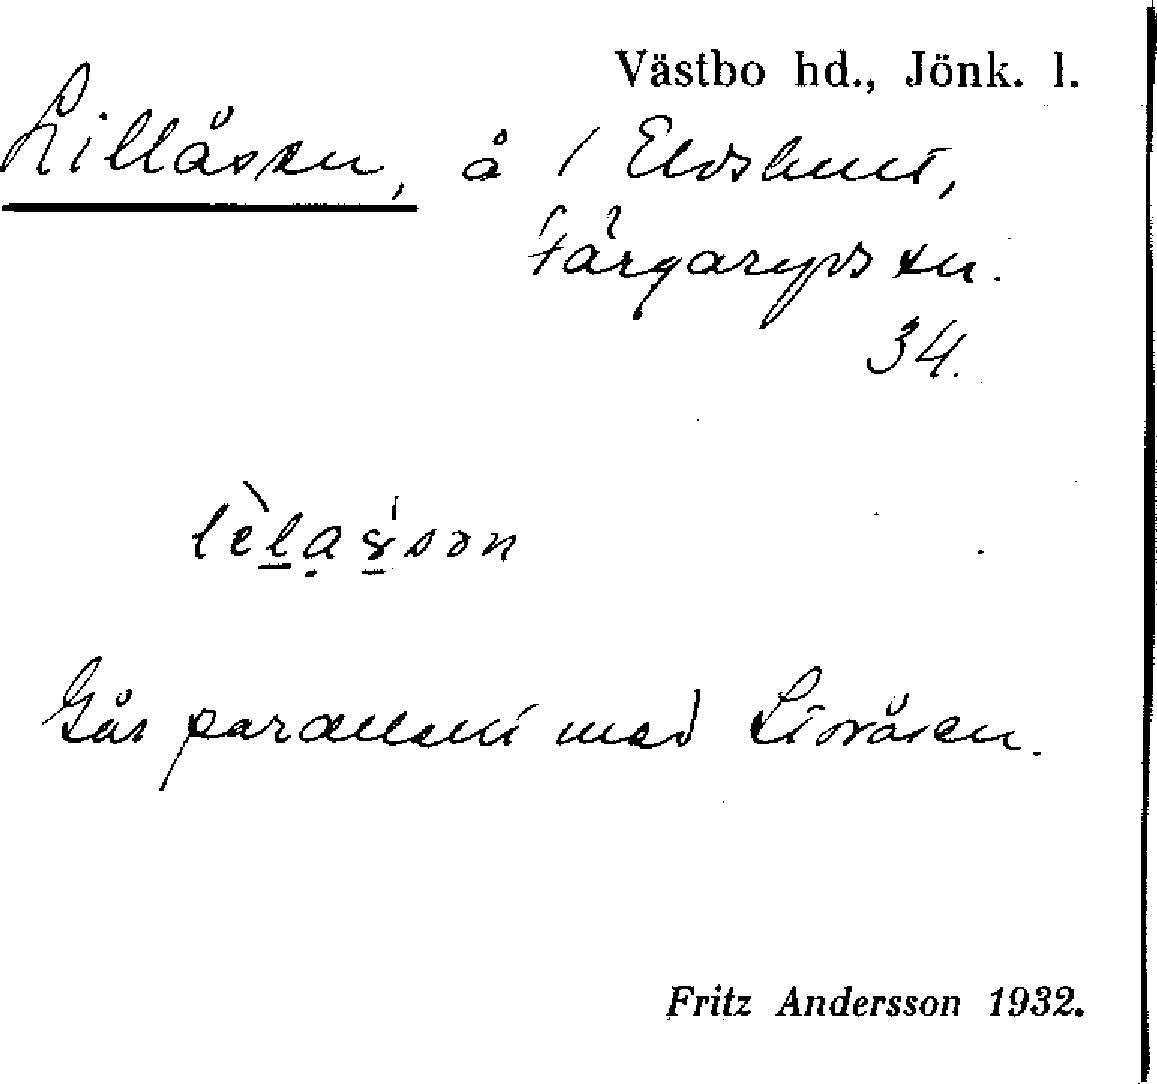 Västbo hd., Jönk. l.
Lillåsen, å i Eldshult,
Färgaryds sn.
34.
Går parallellt med Storåsen.
Fritz Andersson 1932.